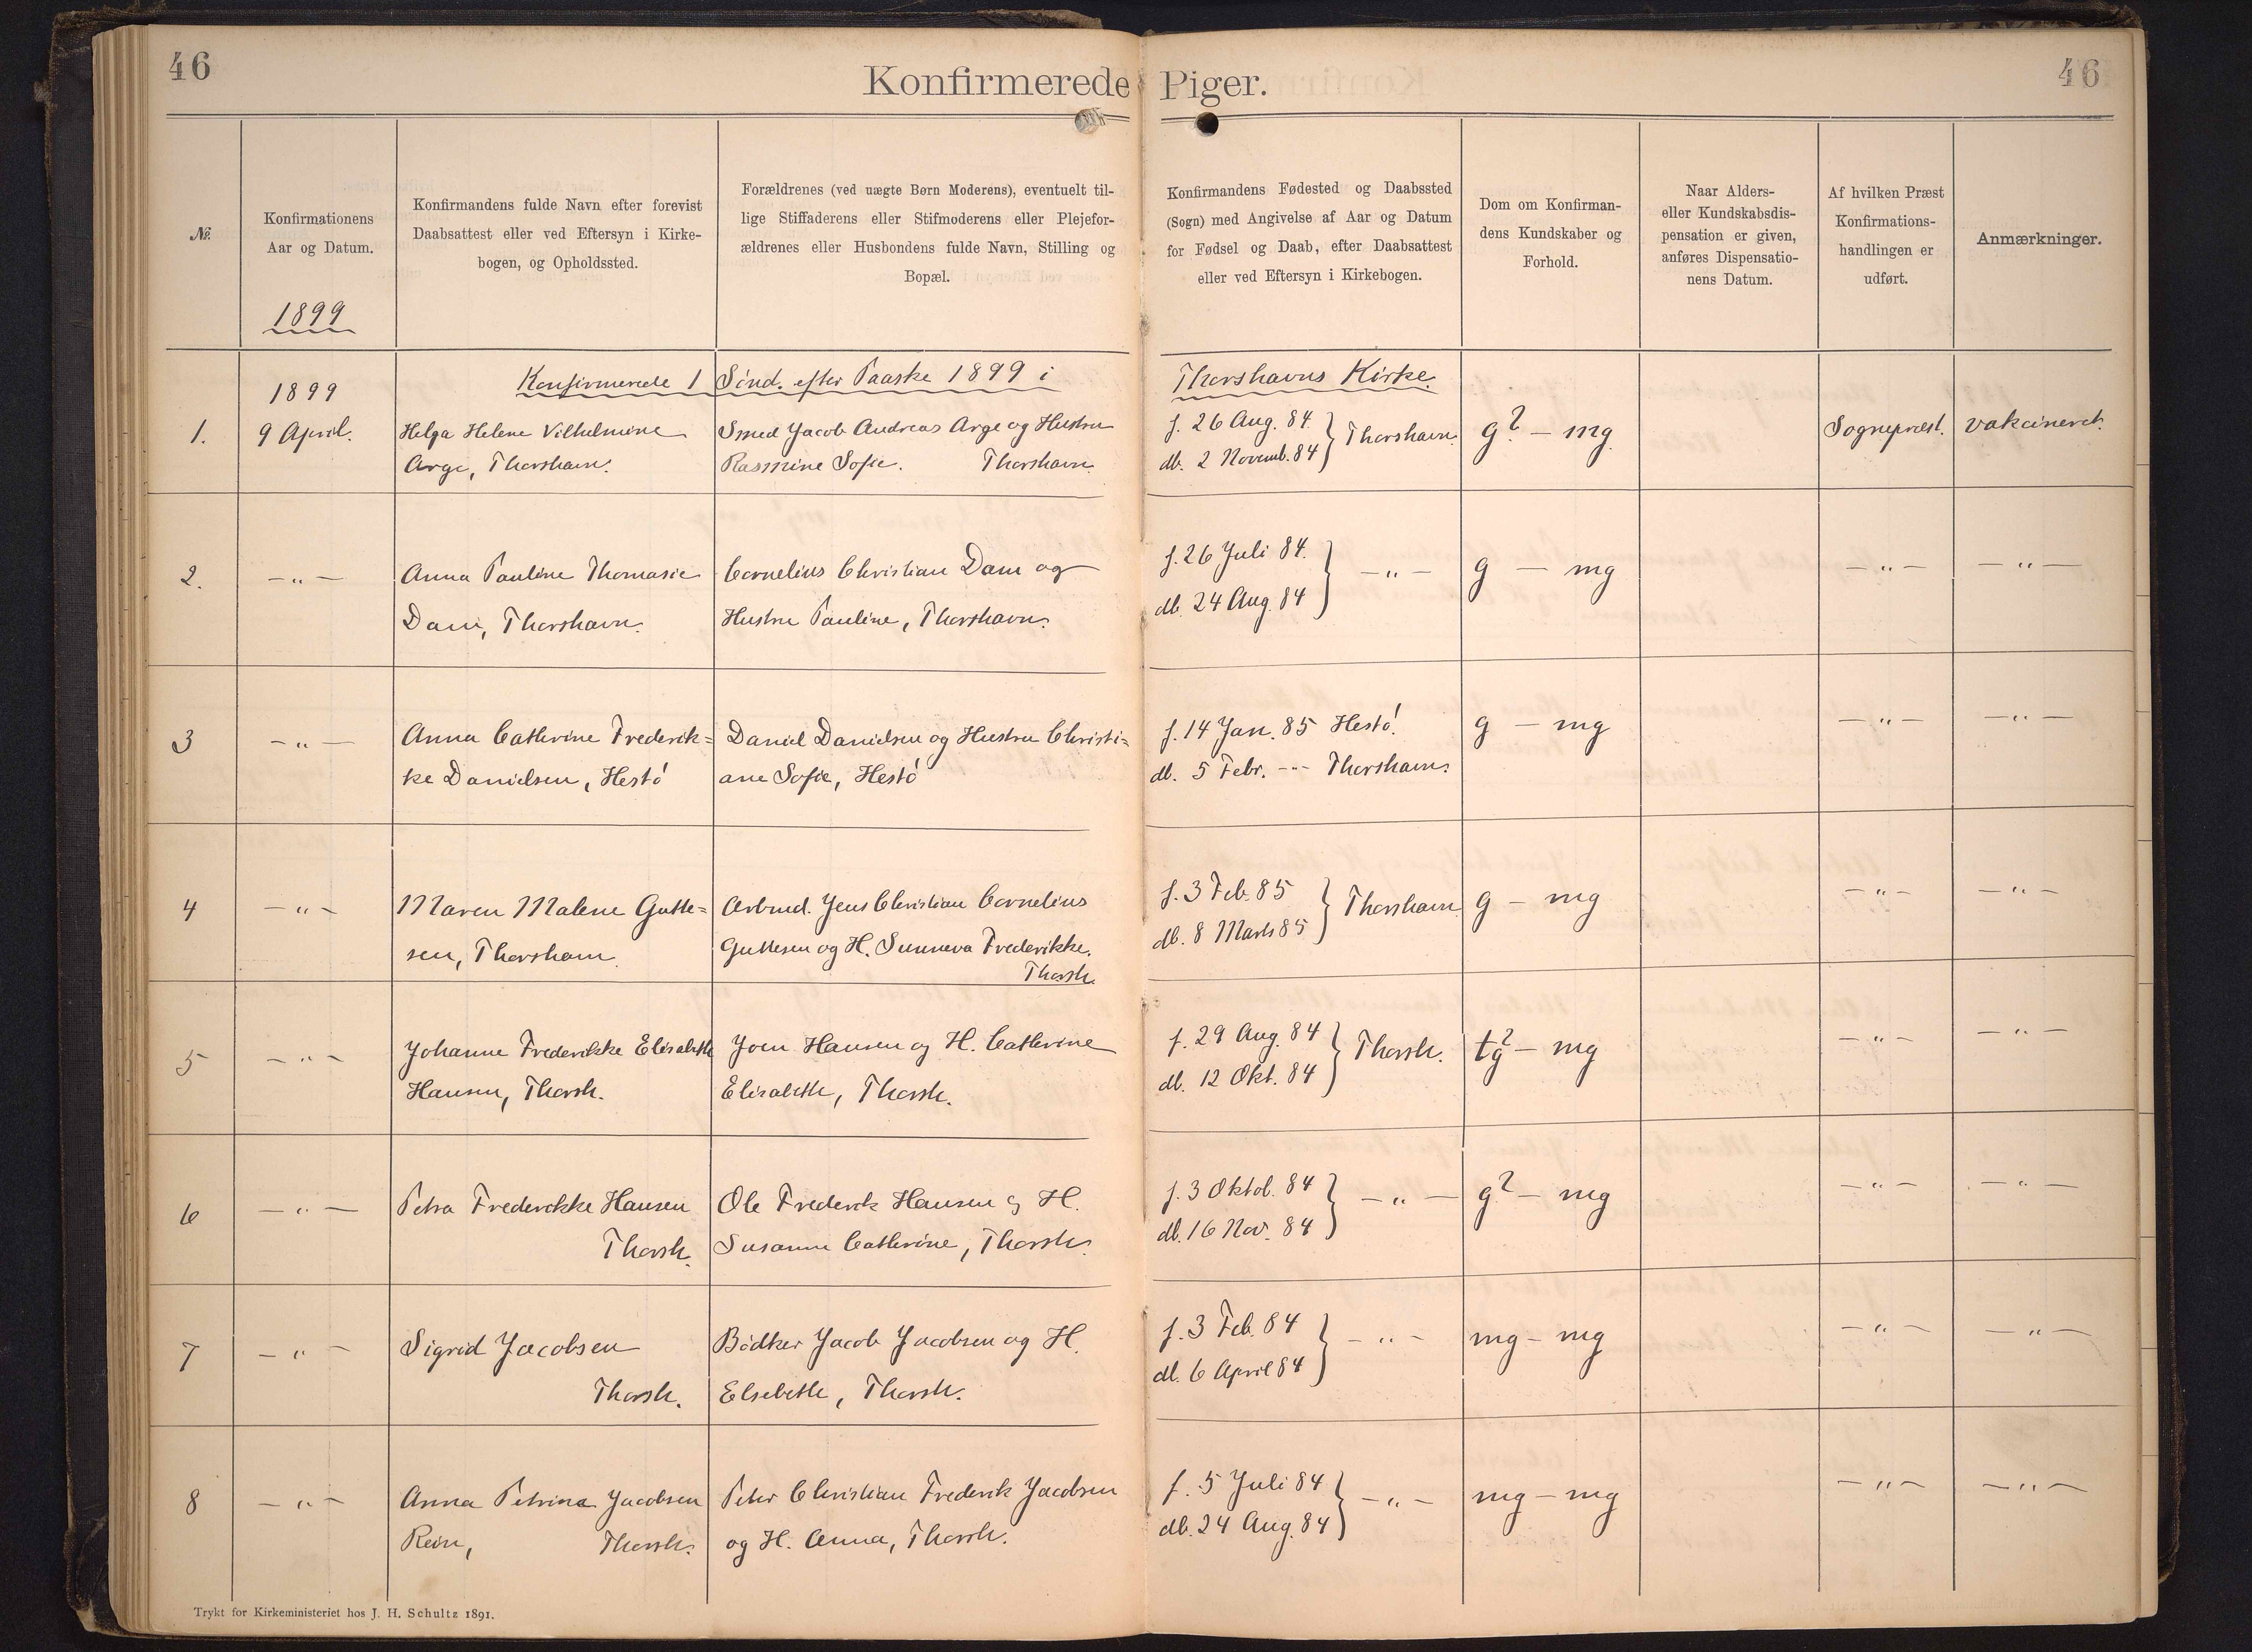 46
Konfirmerede Piger.
46
No.
Konfirmationens
Aar og Datum.
1899
Konfirmandens fulde Navn efter forevist
Daabsattest eller ved Eftersyn i Kirke-
bogen, og Opholdssted.
Forældrenes (ved uægte Børn Moderens), eventuelt til-
lige Stiffaderens eller Stifmoderens eller Plejefor-
ældrenes eller Husbondens fulde Navn, Stilling og
Bopæl.
Konfirmandens Fødested og Daabssted
(Sogn) med Angivelse af Aar og Datum
for Fødsel og Daab, efter Daabsattest
eller ved Eftersyn i Kirkebogen.
Dom om Konfirman-
dens Kundskaber og
Forhold.
Naar Alders-
eller Kundskabsdis-
pensation er given,
anføres Dispensatio-
nens Datum.
Af hvilken Præst
Konfirmations-
handlingen er
udført.
Anmærkninger.
Konfirmerede 1 Sönd. efter Paaske 1899 i Thorshavns Kirke.
1.
1899
9 April.
Helga Helene Vilhelmine
Arge, Thorshavn.
Smed Jacob Andreas Arge og Hustru
Rasmine Sofie. Thorshavn.
f. 26 Aug. 84.
db. 2 Novemb. 84
} Thorshavn.
g? — mg.
Sognepræst.
vakcineret.
2.
— " —
Anna Pauline Thomasie
Dam, Thorshavn.
Cornelius Christian Dam og
Hustru Pauline, Thorshavn.
f. 26 Juli 84.
db. 24 Aug. 84
} — " —
g — mg
— " —
— " —
3
— " —
Anna Cathrine Frederik=
ke Danielsen, Hestö
Daniel Danielsen og Hustru Christi=
ane Sofie, Hestö
f. 14 Jan. 85 Hestö.
db. 5 Febr. -"- Thorshavn.
g — mg
— " —
— " —
4
— " —
Maren Malene Gutte=
sen, Thorshavn.
Arbmd. Jens Christian Cornelius
Guttesen og H. Sunneva Frederikke.
Thorsh.
f. 3 Feb. 85
db. 8 Marts 85
} Thorshavn
g — mg
— " —
— " —
5
— " —
Johanne Frederikke Elisabeth
Hansen, Thorsh.
Joen Hansen og H. Cathrine
Elisabeth, Thorsh.
f. 29 Aug. 84
db. 12 Okt. 84
} Thorsh.
tg? — mg
— " —
— " —
6
— " —
Petra Frederikke Hansen
Thorsh.
Ole Frederik Hansen og H.
Susanne Cathrine, Thorsh.
f. 3 Oktob. 84
db. 16 Nov. 84
} — " —
g? — mg
— " —
— " —
7
— " —
Sigrid Jacobsen
Thorsh.
Bödker Jacob Jacobsen og H.
Elsebeth, Thorsh.
f. 3 Feb. 84
db. 6 April 84
} — " —
mg — mg
— " —
— " —
8
— " —
Anna Petrina Jacobsen
Rein, Thorsh.
Peter Christian Frederik Jacobsen
og H. Anna, Thorsh.
f. 5 Juli 84
db. 24 Aug. 84
} — " —
mg — mg
— " —
— " —
Trykt for Kirkeministeriet hos J. H. Schultz 1891.